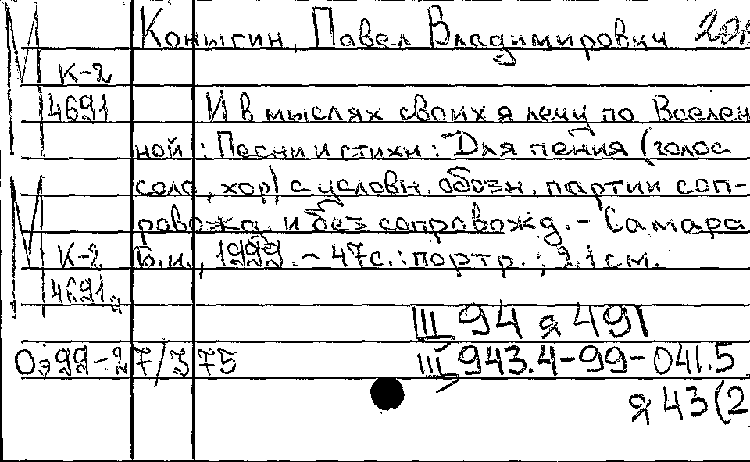 М Коныгин, Павел Владимирович
К-2
4691 И в мыслях своих я лечу по Вселен
ной : Песни и стихи : Для пения (голос
соло, хор) с условн. обозн. партии соп-
М ровожд. и без сопровожд. - Самара
К-2 Б.и., 1999. - 47с. : портр. ; 21см.
4691а
III 94 я 491
Оэ99-27/375 III 943.4-99-041.5
я 43(2